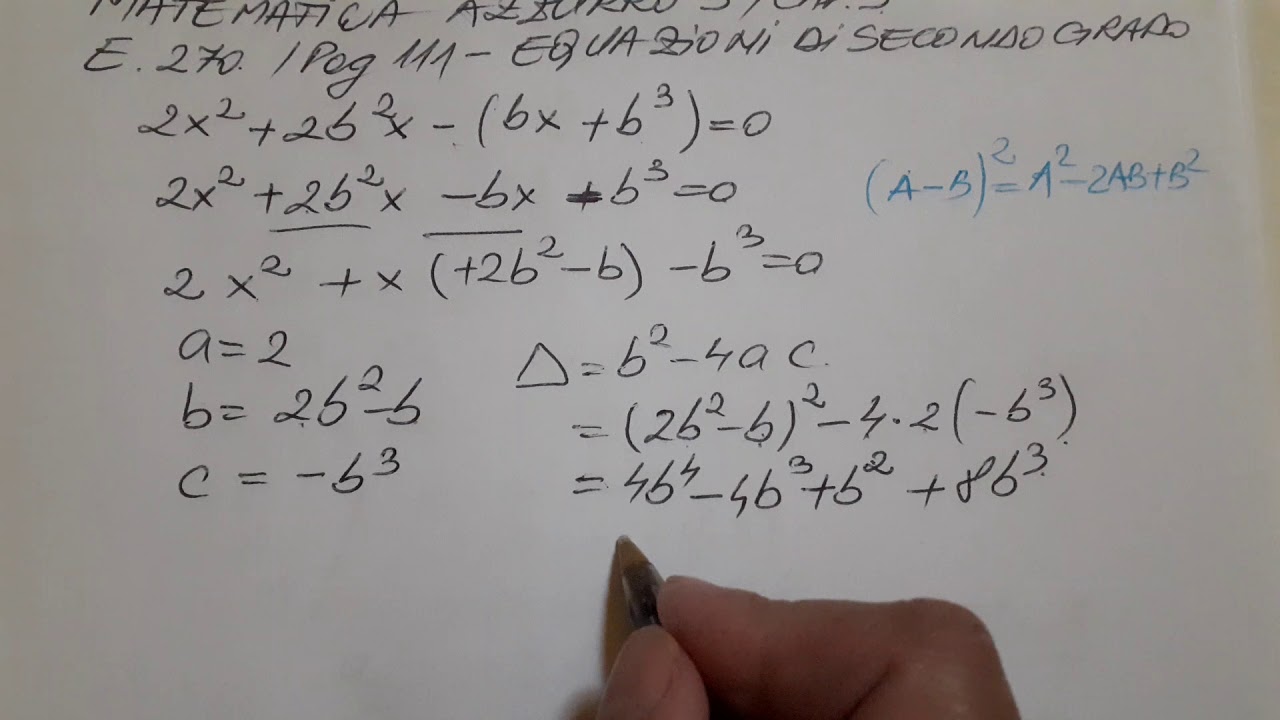 MATEMATICA AZZURRO
E. 270. / Pag 111 - EQUAZIONI DI SECONDO GRADO
2x² + 2b²x - (bx + b³) = 0
2x² + 2b²x - bx - b³ = 0
(A-B)² = A² - 2AB + B²
2x² + x (+2b² - b) - b³ = 0
a = 2
b = 2b² - b
c = -b³
Δ = b² - 4a c.
= (2b² - b)² - 4·2(-b³)
= 4b⁴ - 4b³ + b² + 8b³